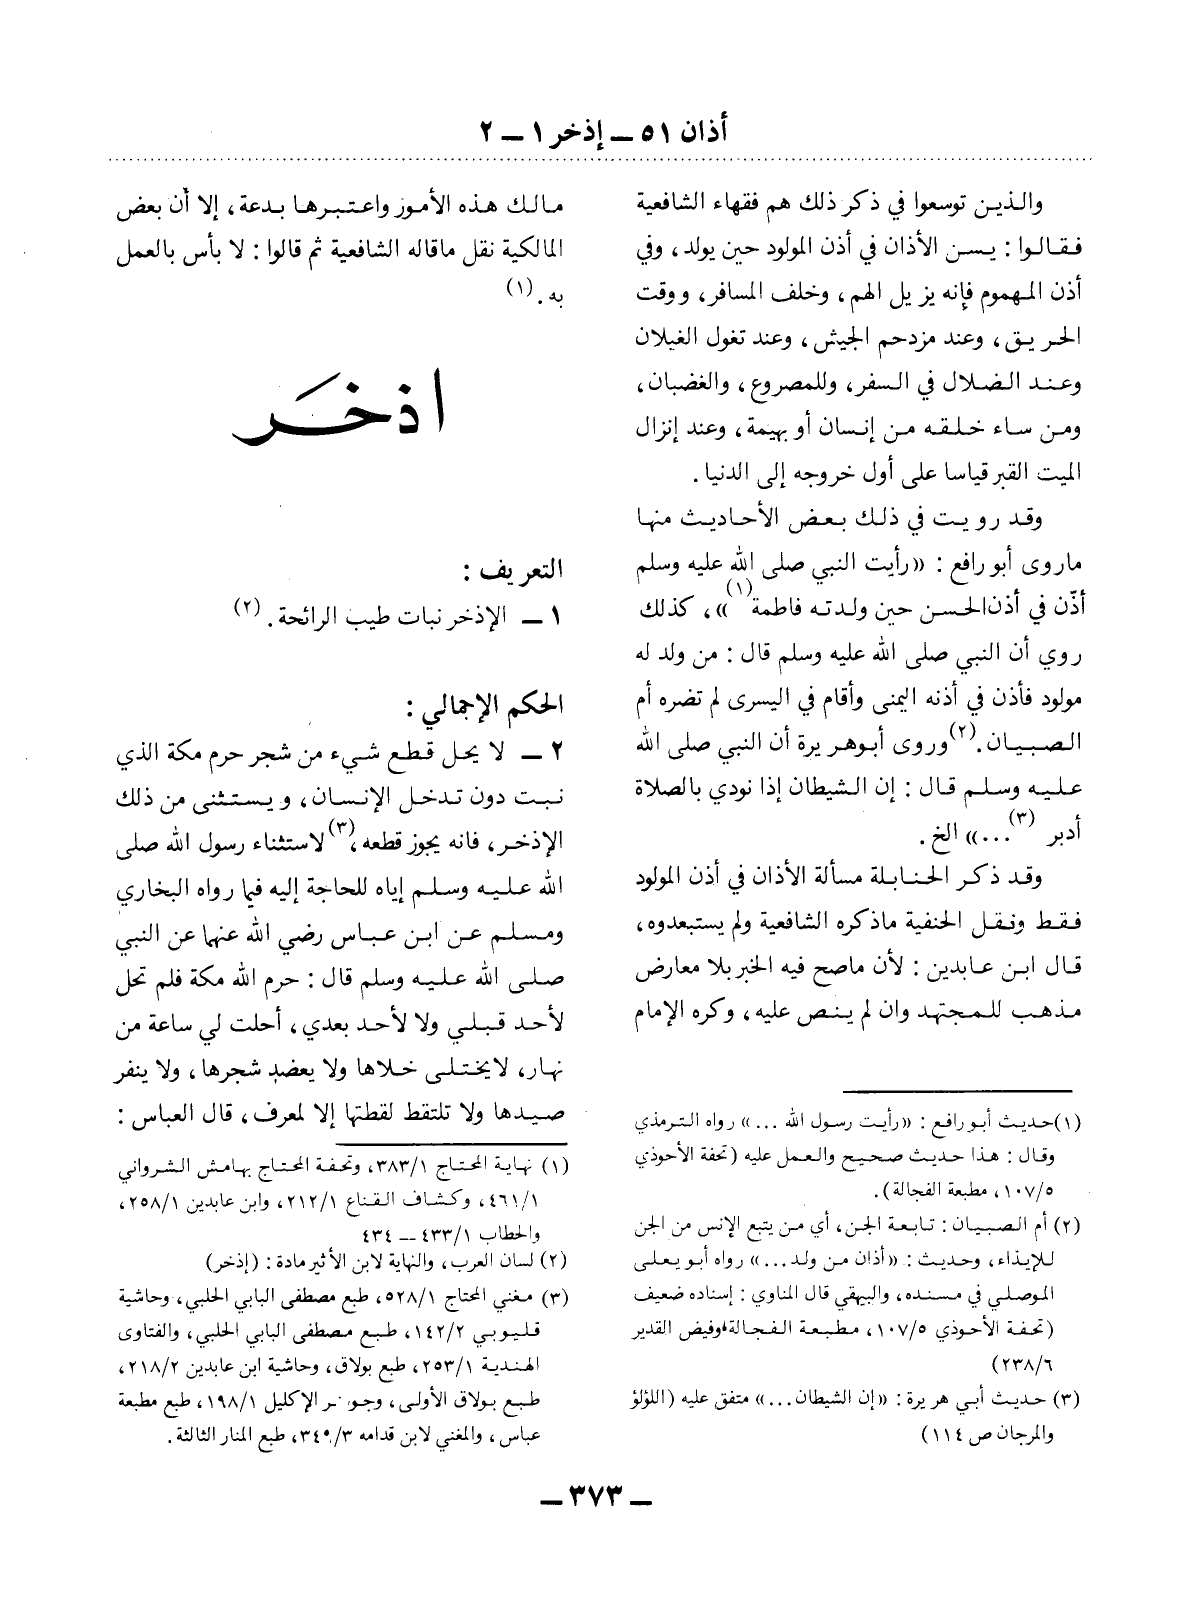 أذان ٥١ ــ إذخر ١ ــ ٢
والذين توسعوا في ذكر ذلك هم فقهاء الشافعية
فقالوا : يسن الأذان في أذن المولود حين يولد ، وفي
أذن المهموم فإنه يزيل الهم ، وخلف المسافر ، ووقت
الحريق ، وعند مزدحم الجيش ، وعند تغول الغيلان
وعند الضلال في السفر ، وللمصروع ، والغضبان ،
ومن ساء خلقه من إنسان أو بهيمة ، وعند إنزال
الميت القبر قياسا على أول خروجه إلى الدنيا .
وقد رويت في ذلك بعض الأحاديث منها
ماروى أبو رافع : «رأيت النبي صلى الله عليه وسلم
أذّن في أذن الحسن حين ولدته فاطمة(١)» ، كذلك
روي أن النبي صلى الله عليه وسلم قال : من ولد له
مولود فأذن في أذنه اليمنى وأقام في اليسرى لم تضره أم
الصبيان .(٢) وروى أبو هريرة أن النبي صلى الله
عليه وسلم قال : إن الشيطان إذا نودي بالصلاة
أدبر (٣)...» الخ .
وقد ذكر الحنابلة مسألة الأذان في أذن المولود
فقط ونقل الحنفية ماذكره الشافعية ولم يستبعدوه ،
قال ابن عابدين : لأن ماصح فيه الخبر بلا معارض
مذهب للمجتهد وان لم ينص عليه ، وكره الإمام
(١) حديث أبو رافع : «رأيت رسول الله ...» رواه الترمذي
وقال : هذا حديث صحيح والعمل عليه (تحفة الأحوذي
٥/ ١٠٧ ، مطبعة الفجالة) .
(٢) أم الصبيان : تابعة الجن ، أي من يتبع الإنس من الجن
للإيذاء ، وحديث : «أذان من ولد ...» رواه أبو يعلى
الموصلي في مسنده ، والبيهقي قال المناوي : إسناده ضعيف
(تحفة الأحوذي ٥/ ١٠٧ ، مطبعة الفجالة، وفيض القدير
٦/ ٢٣٨)
(٣) حديث أبي هريرة : «إن الشيطان ...» متفق عليه (اللؤلؤ
والمرجان ص ١١٤)
مالك هذه الأمور واعتبرها بدعة ، إلا أن بعض
المالكية نقل ماقاله الشافعية ثم قالوا : لا بأس بالعمل
به . (١)
اذخَر
التعريف :
١ ــ الإذخر نبات طيب الرائحة . (٢)
الحكم الإجمالي :
٢ ــ لا يحل قطع شيء من شجر حرم مكة الذي
نبت دون تدخل الإنسان ، ويستثنى من ذلك
الإذخر ، فانه يجوز قطعه ،(٣) لاستثناء رسول الله صلى
الله عليه وسلم إياه للحاجة إليه فيما رواه البخاري
ومسلم عن ابن عباس رضي الله عنهما عن النبي
صلى الله عليه وسلم قال : حرم الله مكة فلم تحل
لأحد قبلي ولا لأحد بعدي ، أحلت لي ساعة من
نهار ، لايختلى خلاها ولا يعضد شجرها ، ولا ينفر
صيدها ولا تلتقط لقطتها إلا لمعرف ، قال العباس :
(١) نهاية المحتاج ١/ ٣٨٣ ، وتحفة المحتاج بهامش الشرواني
١/ ٤٦١ ، وكشاف القناع ١/ ٢١٢ ، وابن عابدين ١/ ٢٥٨ ،
والحطاب ١/ ٤٣٣ ــ ٤٣٤
(٢) لسان العرب ، والنهاية لابن الأثير مادة : (إذخر)
(٣) مغني المحتاج ١/ ٥٢٨ ، طبع مصطفى البابي الحلبي ، وحاشية
قليوبي ٢/ ١٤٢ ، طبع مصطفى البابي الحلبي ، والفتاوى
الهندية ١/ ٢٥٣ ، طبع بولاق ، وحاشية ابن عابدين ٢/ ٢١٨ ،
طبع بولاق الأولى ، وجو هر الإكليل ١/ ١٩٨ ، طبع مطبعة
عباس ، والمغني لابن قدامه ٣/ ٣٤٩ ، طبع المنار الثالثة .
ــ ٣٧٣ ــ